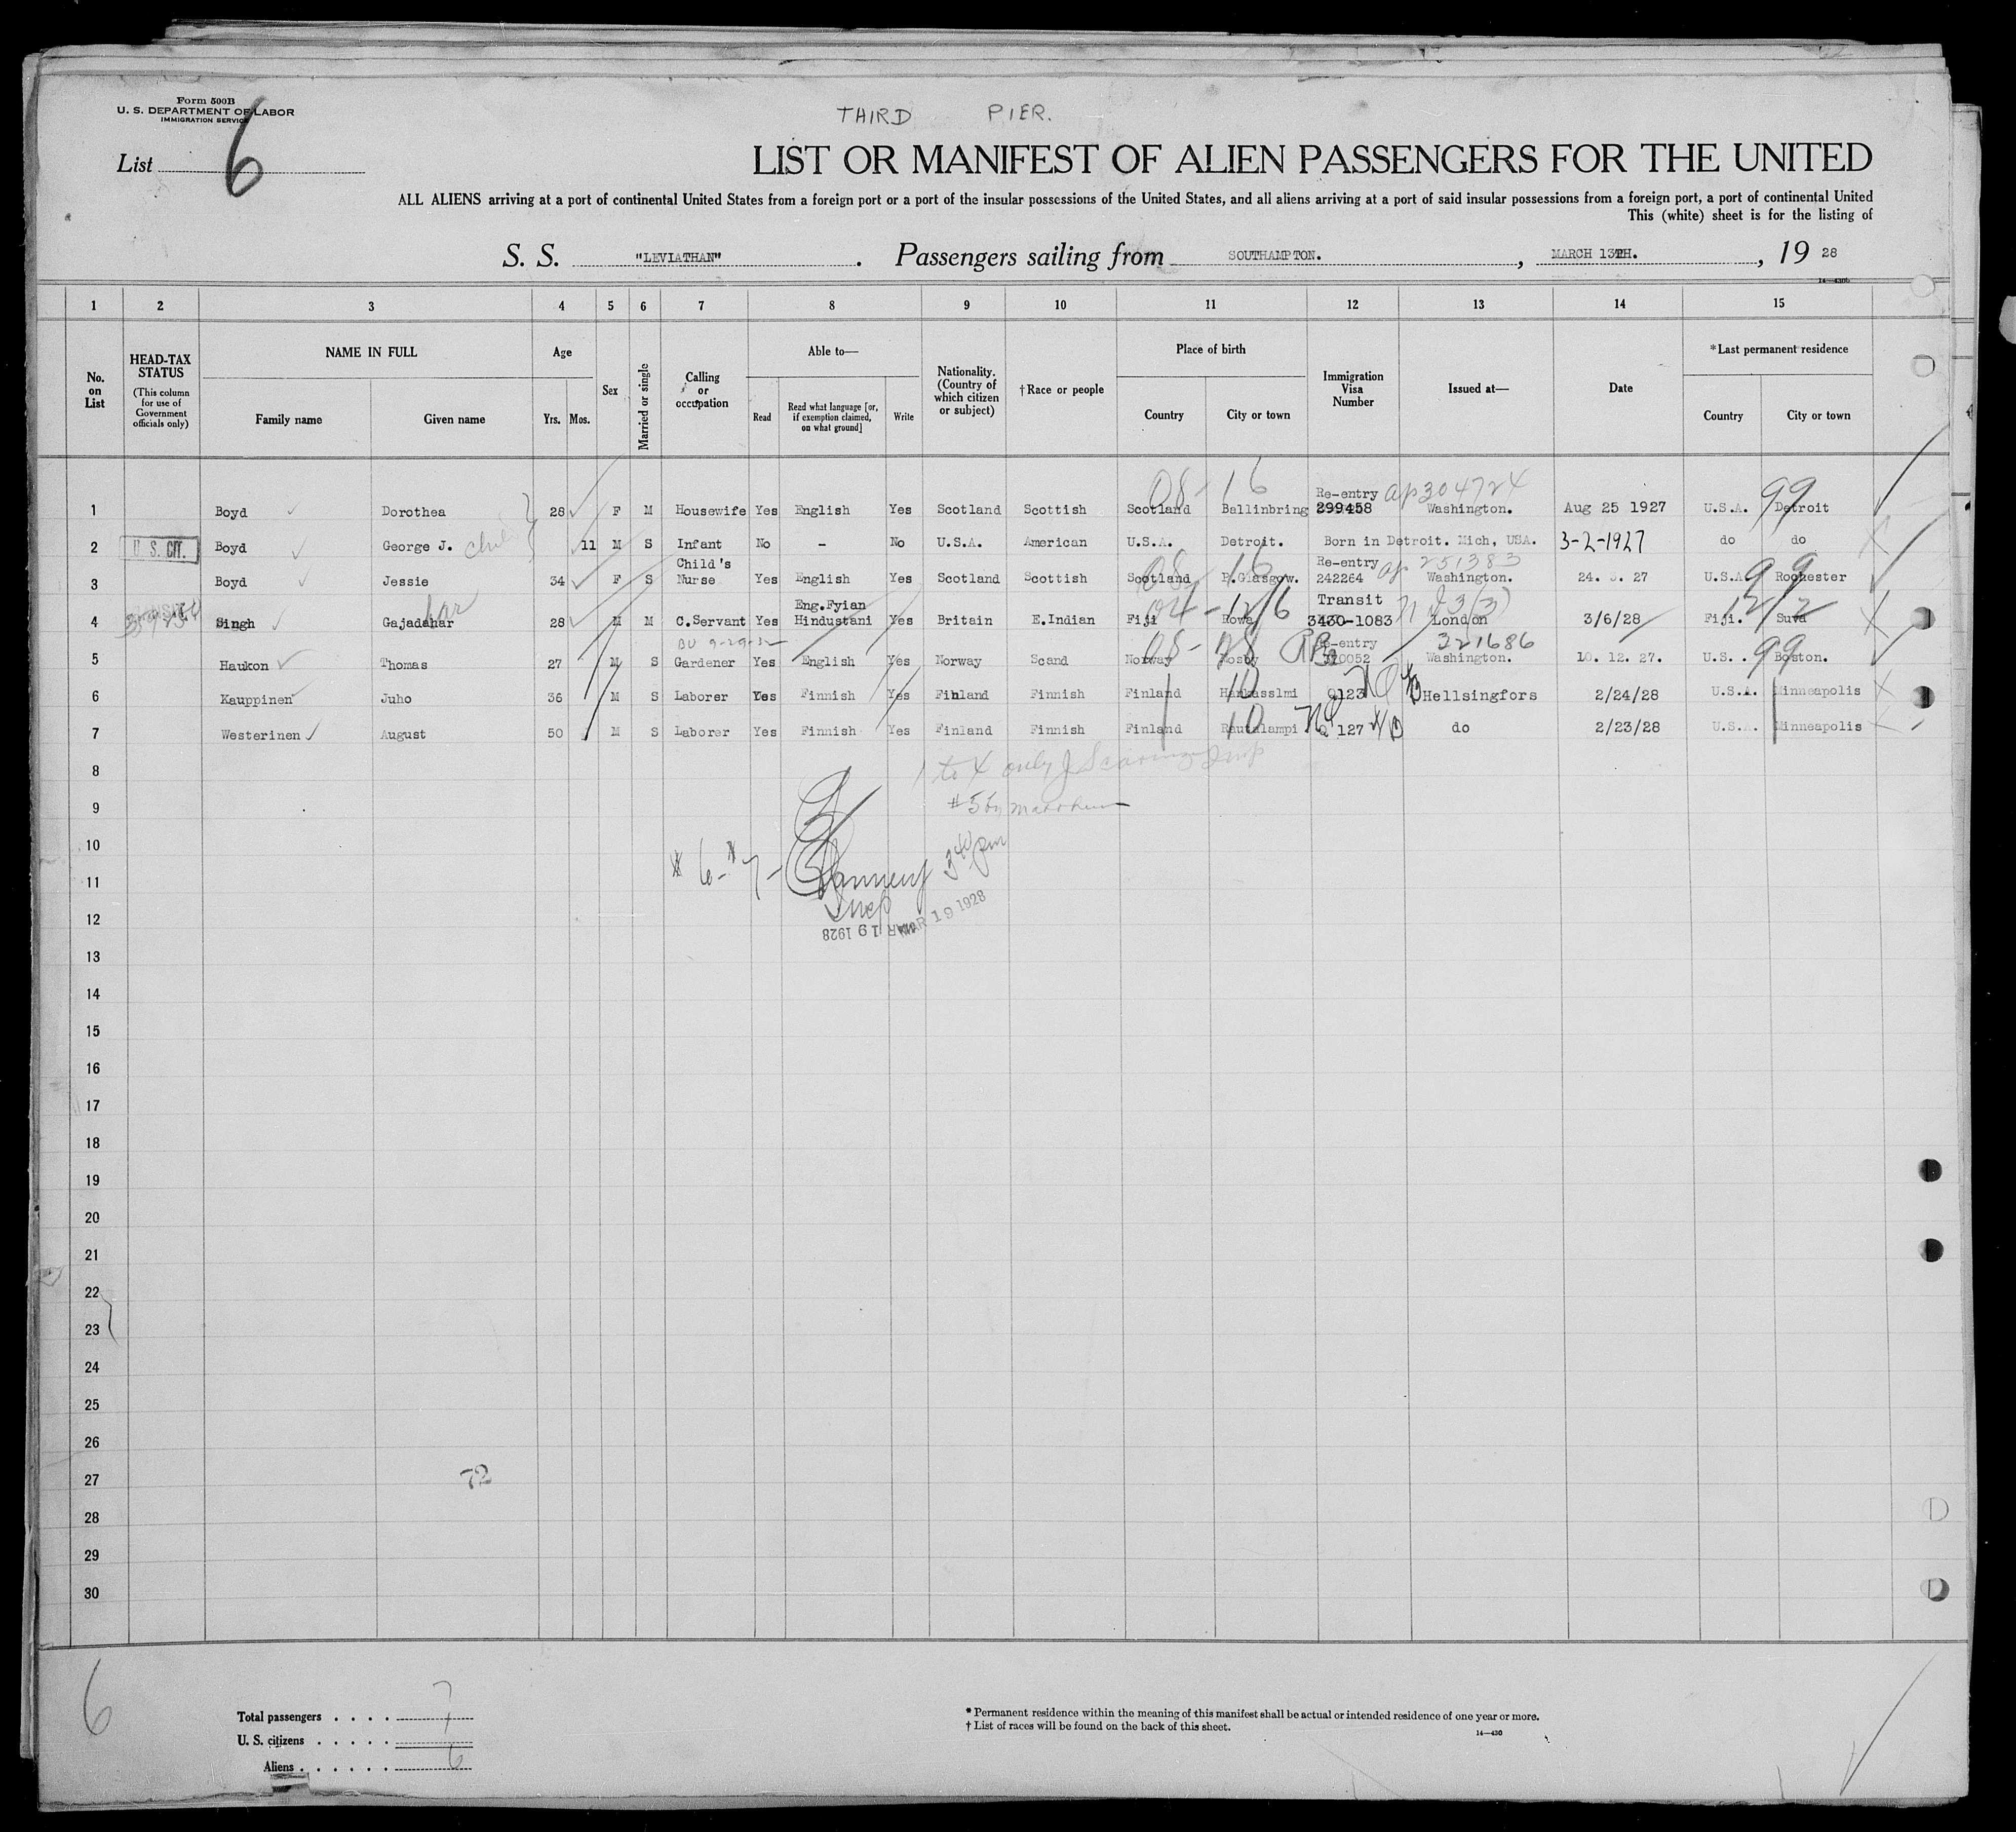 Form 500B
U. S. DEPARTMENT OF LABOR
IMMIGRATION SERVICE
THIRD PIER.
List 6
LIST OR MANIFEST OF ALIEN PASSENGERS FOR THE UNITED
ALL ALIENS arriving at a port of continental United States from a foreign port or a port of the insular possessions of the United States, and all aliens arriving at a port of said insular possessions from a foreign port, a port of continental United
This (white) sheet is for the listing of
S. S. "LEVIATHAN". Passengers sailing from SOUTHAMPTON., MARCH 13TH., 19 28
1 2 3 4 5 6 7 8 9 10 11 12 13 14 15
No. on List
HEAD-TAX STATUS
(This column for use of Government officials only)
NAME IN FULL
Family name Given name
Age
Yrs. Mos.
Sex
Married or single
Calling or occupation
Able to—
Read Read what language [or, if exemption claimed, on what ground] Write
Nationality. (Country of which citizen or subject)
†Race or people
Place of birth
Country City or town
Immigration Visa Number
Issued at—
Date
*Last permanent residence
Country City or town
08-16 Re-entry ap304724 99
1 Boyd Dorothea 28 F M Housewife Yes English Yes Scotland Scottish Scotland Ballinbring 299458 Washington. Aug 25 1927 U.S.A. Detroit
2 U S. CIT. Boyd George J. child 11 M S Infant No - No U.S.A. American U.S.A. Detroit. Born in Detroit. Mich, USA. 3-2-1927 do do
Child's Re-entry ap 251383
3 Boyd Jessie 34 F S Nurse Yes English Yes Scotland Scottish Scotland P.Glasgow. 242264 Washington. 24. 27 U.S.A Rochester
har Eng.Fyian Transit
4 Singh Gajadahar 28 M M C.Servant Yes Hindustani Yes Britain E.Indian Fiji Rowa 3430-1083 London 3/6/28 Fiji. Suva
Re-entry 321686 99
5 Haukon Thomas 27 M S Gardener Yes English Yes Norway Scand Norway Mosby Washington. 10. 12. 27. U.S. . Boston.
6 Kauppinen Juho 36 M S Laborer Yes Finnish Yes Finland Finnish Finland Hankasslmi Q123 Hellsingfors 2/24/28 U.S.A. Minneapolis
7 Westerinen August 50 M S Laborer Yes Finnish Yes Finland Finnish Finland Rautalampi Q 127 do 2/23/28 U.S.A. Minneapolis
8
1 to 4 only
9
10
11
12
MAR 19 1928
MAR 19 1928
13
14
15
16
17
18
19
20
21
22
23
24
25
26
27
72
28
29
30
6
Total passengers . . . . 7
U. S. citizens . . . . .
Aliens . . . . . . 6
* Permanent residence within the meaning of this manifest shall be actual or intended residence of one year or more.
† List of races will be found on the back of this sheet.
14—430